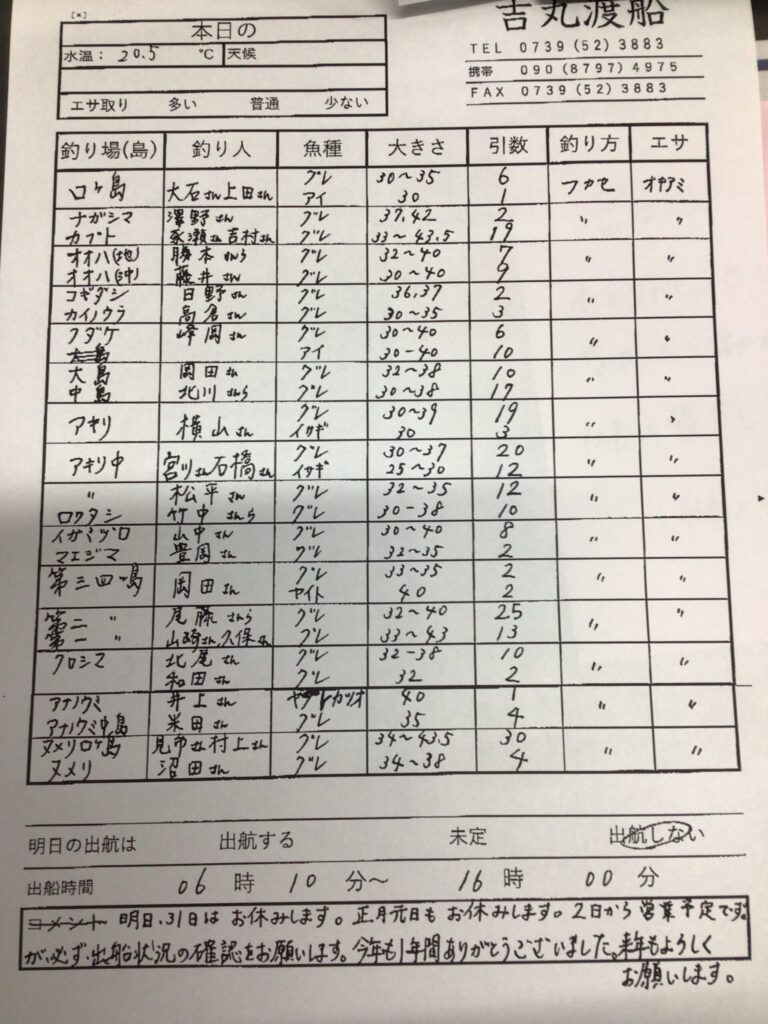 [*]
本日の
水温： 20.5 ℃ 天候
エサ取り 多い 普通 少ない
吉丸渡船
TEL 0739(52)3883
携帯 090(8797)4975
FAX 0739(52)3883
釣り場(島) 釣り人 魚種 大きさ 引数 釣り方 エサ
ロヶ島 大石さん上田さん グレ 30～35 6 フカセ オキアミ
アイ 30 1
ナガシマ 澤野さん グレ 37,42 2 〃 〃
カブト 永瀬さん吉村さん グレ 33～43.5 19
オオハ(地) 勝本さんら グレ 32～40 7 〃 〃
オオハ(沖) 藤井さん グレ 30～40 9
コギダシ 日野さん グレ 36,37 2 〃 〃
カイノウラ 高倉さん グレ 30～35 3
フダケ 峰岡さん グレ 30～40 6 〃 〃
アイ 30-40 10
大島 岡田さん グレ 32～38 10 〃 〃
中島 北川さんら グレ 30～38 17
アキリ 横山さん グレ 30～39 19 〃 〃
イサギ 30 3
アキリ中 宮川さん石橋さん グレ 30～37 20 〃 〃
イサギ 25～30 12
〃 松平さん グレ 32～35 12 〃 〃
ロクタシ 竹中さんら グレ 30-38 10
イガミヅロ 山中さん グレ 30～40 8 〃 〃
マエジマ 豊岡さん グレ 32～35 2
第三四嶋 岡田さん グレ 33～35 2 〃 〃
ヤイト 40 2
第二 〃 尾藤さんら グレ 32～40 25 〃 〃
第一 〃 山崎さん,久保さん グレ 33～43 13
クロシマ 北尾さん グレ 32-38 10 〃 〃
和田さん グレ 32 2
アナノウミ 井上さん カツオ 40 1 〃 〃
アナノウミ中島 米田さん グレ 35 4
ヌメリロヶ島 見市さん村上さん グレ 34～43.5 30 〃 〃
ヌメリ 沼田さん グレ 34～38 4
明日の出航は 出航する 未定 出航しない
出船時間 06 時 10 分～ 16 時 00 分
コメント 明日、31日は お休みします。正月元日も お休みします。2日から 営業予定です。
が、必ず、出船状況の確認をお願いします。今年も1年間ありがとうございました。来年もよろしく
お願いします。